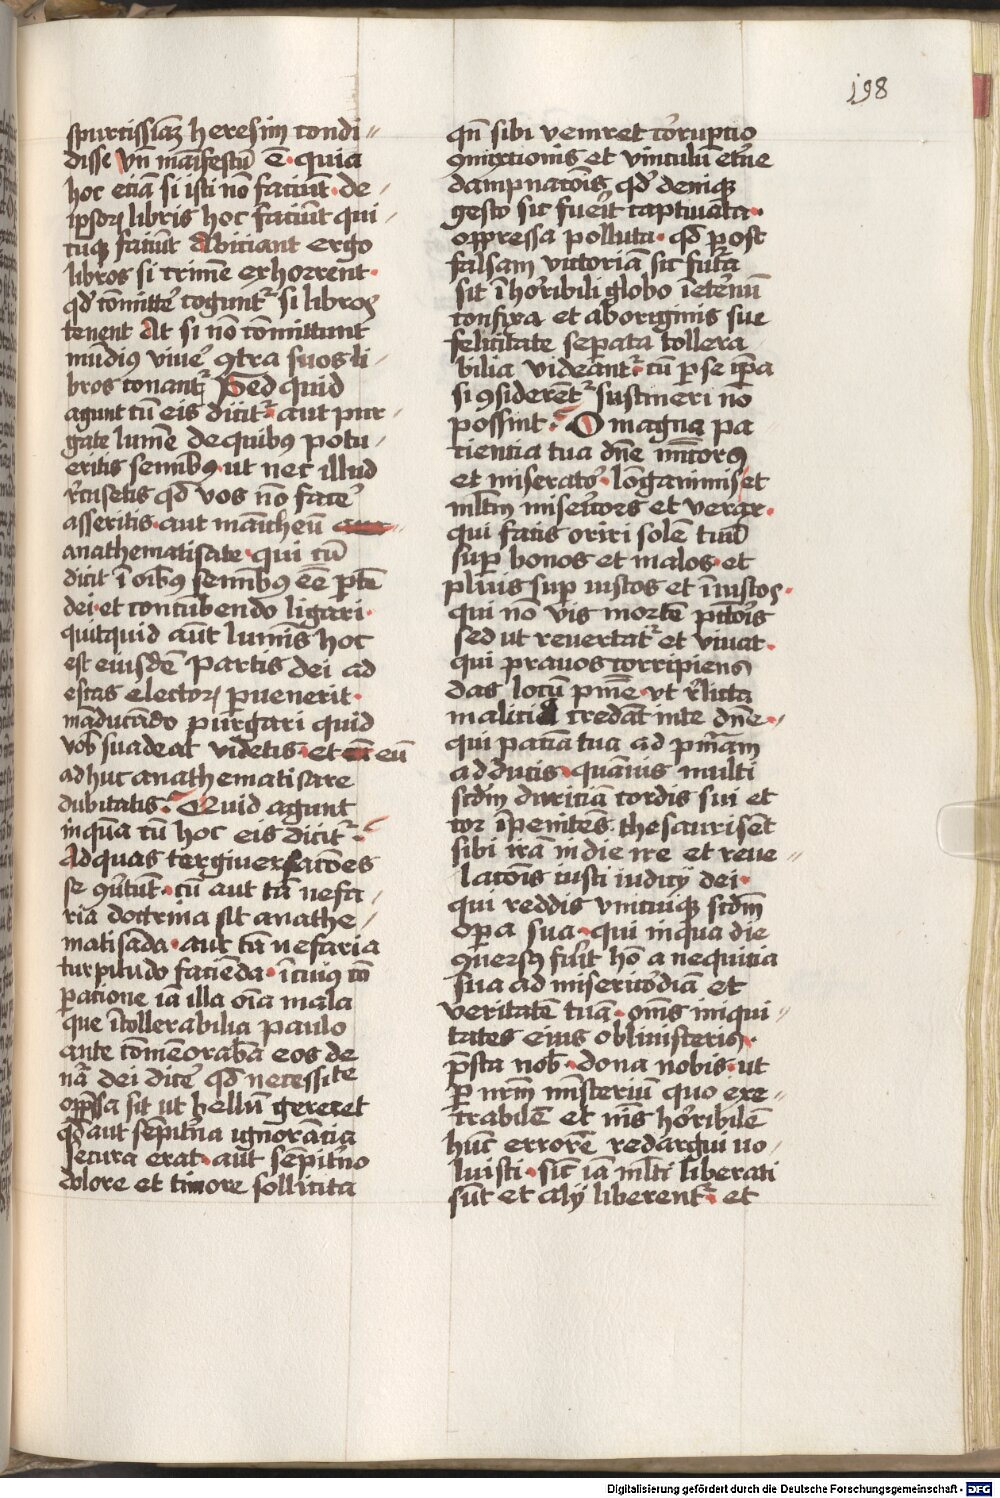 198
spurcissimā heresim condi〃
disse vn̄ manifestū ē · quia
hoc etiā si isti nō faciūt · de /
ipsoꝝ libris hoc faciūt qui /
cūqꝫ faciūt Abiciant ergo
libros si crimē exhorrent ·
qd̓ cōmitte᷒ cogunt᷑ si libros
tenent At si nō cōmittunt
mūdius viue᷒ ꝯtra suos li /
bros conant᷑ Sed quid
agunt cū eis dicit᷑ · aut pur /
gate lumē de quibꝰ potu /
eritis semībꝰ · ut nec illud
r̄cusetis qd̓ vos nō face᷒
asseritis · aut manicheū
anathematisate · qui cū
dicit ī oībꝰ semībꝰ eē ꝑtē
dei · et concūbendo ligari ·
quitquid aūt lumīs hoc
est eiusdē partis dei ad
escas electoꝝ ꝑuenerit ·
māducādo purgari quid
vob̄ suadeat videtis · et eū
adhuc anathematisare
dubitatis · Quid agunt
inquā cū hoc eis dicit᷑ ·
Ad quas tergiuersacōes
se ꝯu᷒tūt · cū aut tā nefa /
ria doctrina sit anathe /
matisāda · aut tā nefaria
turpitudo faciēda · ī cuiꝰ cō
ꝑacione iā illa oīa mala
que ītollerabilia paulo
ante cōmēorabā eos de
nā dei dice᷒ qd̓ necessite
opp̄ssa sit ut bellū gereret
qd̓ aut sēpit᷒na ignorācia
secura erat · aūt sēpit᷒no
dolore et timore sollicita
qn̄ sibi veniret cor᷒ruptio
ꝯmixtionis et vinculū et᷒ne
dampnacōis qd̓ deniqꝫ
gesto sic fuerit captiuata ·
oppressa polluta · qd̓ post
falsam victoriā sic futā
sit ī hor᷒ribili globo ī et᷒nū
confixa et ab originis sue
felicitate seperata tollera
bilia videant᷑ · cū ꝑ se ip̄a
si ꝯsiderēt᷑ sustineri nō
possint · O magna pa
ciencia tua dn̄e
et miserato᷒ · lōganimis et
ml̄tm mise᷒cors et verax ·
qui facis oriri solē tuū
suꝑ bonos et malos · et
pluis suꝑ iustos et īiustos ·
qui nō vis mortē pctōis
sed ut reuertat᷑ et viuat ·
qui prauos corripiens
das locū pn̄iē · vt r̄licta
malicia credāt in te dn̄e ·
qui paciā tua ad pn̄iam
adducis · quāuis multi
scdm duriciā cordis sui et
cor īpenitēs · thesaurisēt
sibi irā in die ire et reue〃
lacōis iusti iudicij dei ·
qui reddis vnicuiqꝫ scdm
oꝑa sua · qui in qua die
ꝯuersꝰ fu᷒it hō a nequicia
sua ad misericordiā et
veritatē tuā · oms iniqui〃
tates eius obliuisceris ·
p̄sta nob̄ · dona nobis · ut
ꝑ nrm̄ mīsteriū quo exe /
crabilē et nīs hor᷒ribilē
hūc errorē redargui uo /
luisti · sic̄ iā ml̄ti liberati
sūt et alij liberent᷑ · et
Digitalisierung gefördert durch die Deutsche Forschungsgemeinschaft - DFG